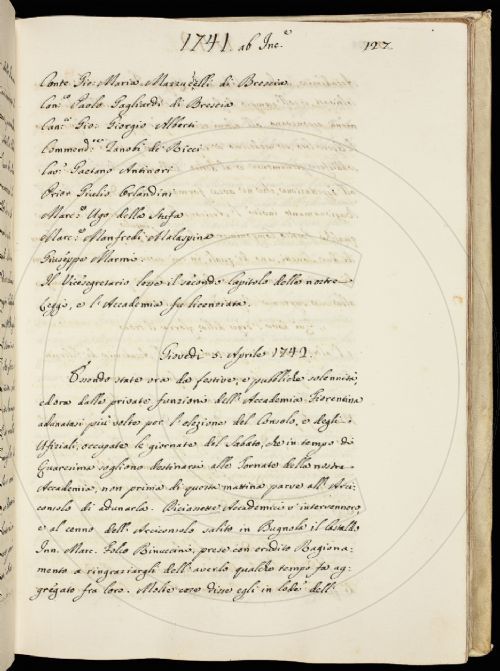 1741 ab Inc.e
127.
Conte Gio: Maria Mazzucelli di Brescia
Can.co Paolo Gagliardi di Brescia
Can.co Gio: Giorgio Alberti
Commend.re Zanobi de Ricci
Cav.e Gaetano Antinori
Prior Giulio Orlandini
Marc.e Ugo della Stufa
Marc.e Manfredi Malaspina
Giuseppe Marmi.
Il Vicesegretario lesse il secondo Capitolo delle nostre
Leggi, e l'Accademia fu licenziata.
Giovedì 5. Aprile 1742.
Essendo state ora da festive, e pubbliche solennità,
ed ora dalle private funzioni dell'Accademia Fiorentina
adunatasi più volte per l'elezione del Consolo, e degli
Ufiziali, occupate le giornate del Sabato, che in tempo di
Quaresima sogliono destinarsi alle Tornate della nostra
Accademia, non prima di questa mattina parve all'Arci-
consolo di adunarla. Diciassette Accademici v'intervennero,
e al cenno dell'Arciconsolo salito in Bugnola il Castaldo
Inn. Marc. Folco Rinuccini, prese con erudito Ragiona-
mento a ringraziargli dell'averlo qualche tempo fa ag-
gregato fra loro. Molte cose disse egli in lode dell'